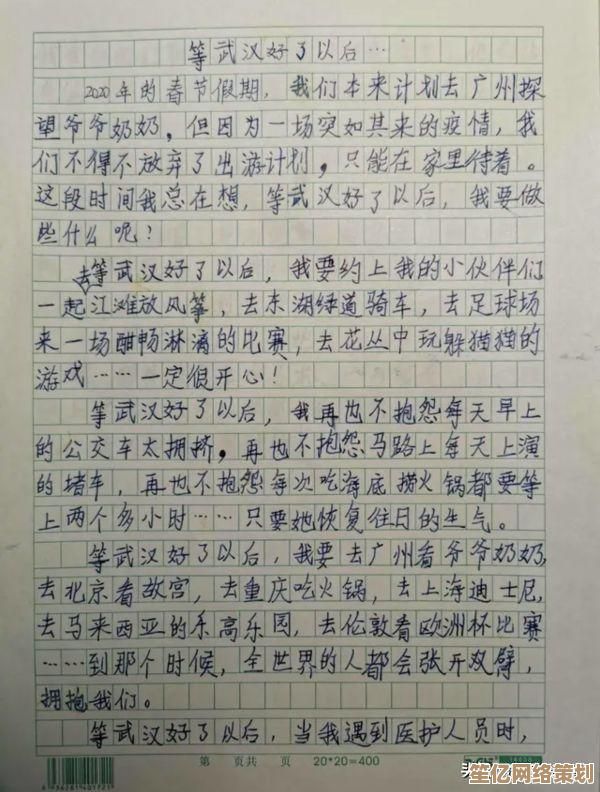 等武汉好了以后…
2020年的春节假期，我们本来计划去广州探
望爷爷奶奶。但因为一场突如其来的疫情，我
们不得不放弃了出游计划，只能在家里待着。
这段时间我总在想，等武汉好了以后，我要做
些什么呢？
等武汉好了以后，我要约上我的小伙伴们
一起去江滩放风筝，去东湖绿道骑车，去足球场
来一场酣畅淋漓的比赛，去花丛中玩躲猫猫的
游戏……一定很开心！
等武汉好了以后，我再也不抱怨每天早上
的公交车太拥挤，再也不抱怨马路上每天上演
的堵车，再也不抱怨每次吃海底捞火锅都要等
上两个多小时……只要她恢复往日的生气。
等武汉好了以后，我要去广州看爷爷奶奶，
去北京看故宫，去重庆吃火锅，去上海迪士尼，
去马来西亚的乐高乐园，去伦敦看欧洲杯比赛
……到那个时候，全世界的人都会张开双臂，
拥抱我们。
等武汉好了以后，当我遇到医护人员时，
第 页共 页 20*20=400
6936281401721
笙亿网络策划